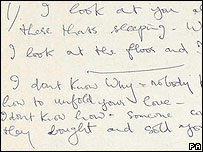 1) I look at you a
these thats sleeping. W
I look at the floor and
I dont know Why - nobody
how to unfold your love -
I dont know how - someone co
they bought and sold yo
PA